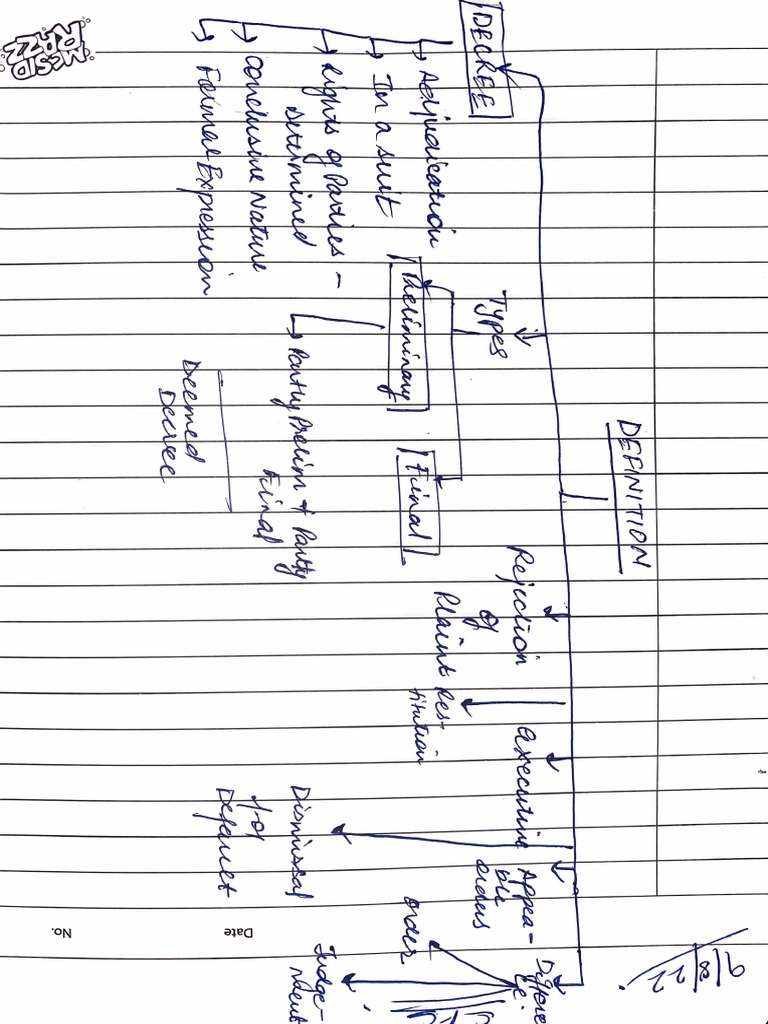 DEFINITION
DECREE
Adjudication
In a suit
Rights of Parties -
Determined
Conclusive Nature
Formal Expression
Types
Preliminary
Final
Partly Prelim + Partly
Final
Deemed
Decree
Rejection
of
Plaint
Res-
titution
Appea-
ble
orders
Dismissal
for
Default
order
Judge-
ment
Date
No.
9/8/22